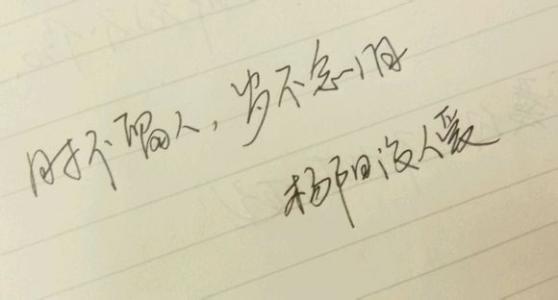 时不留人，岁不念旧
杨阳没人爱